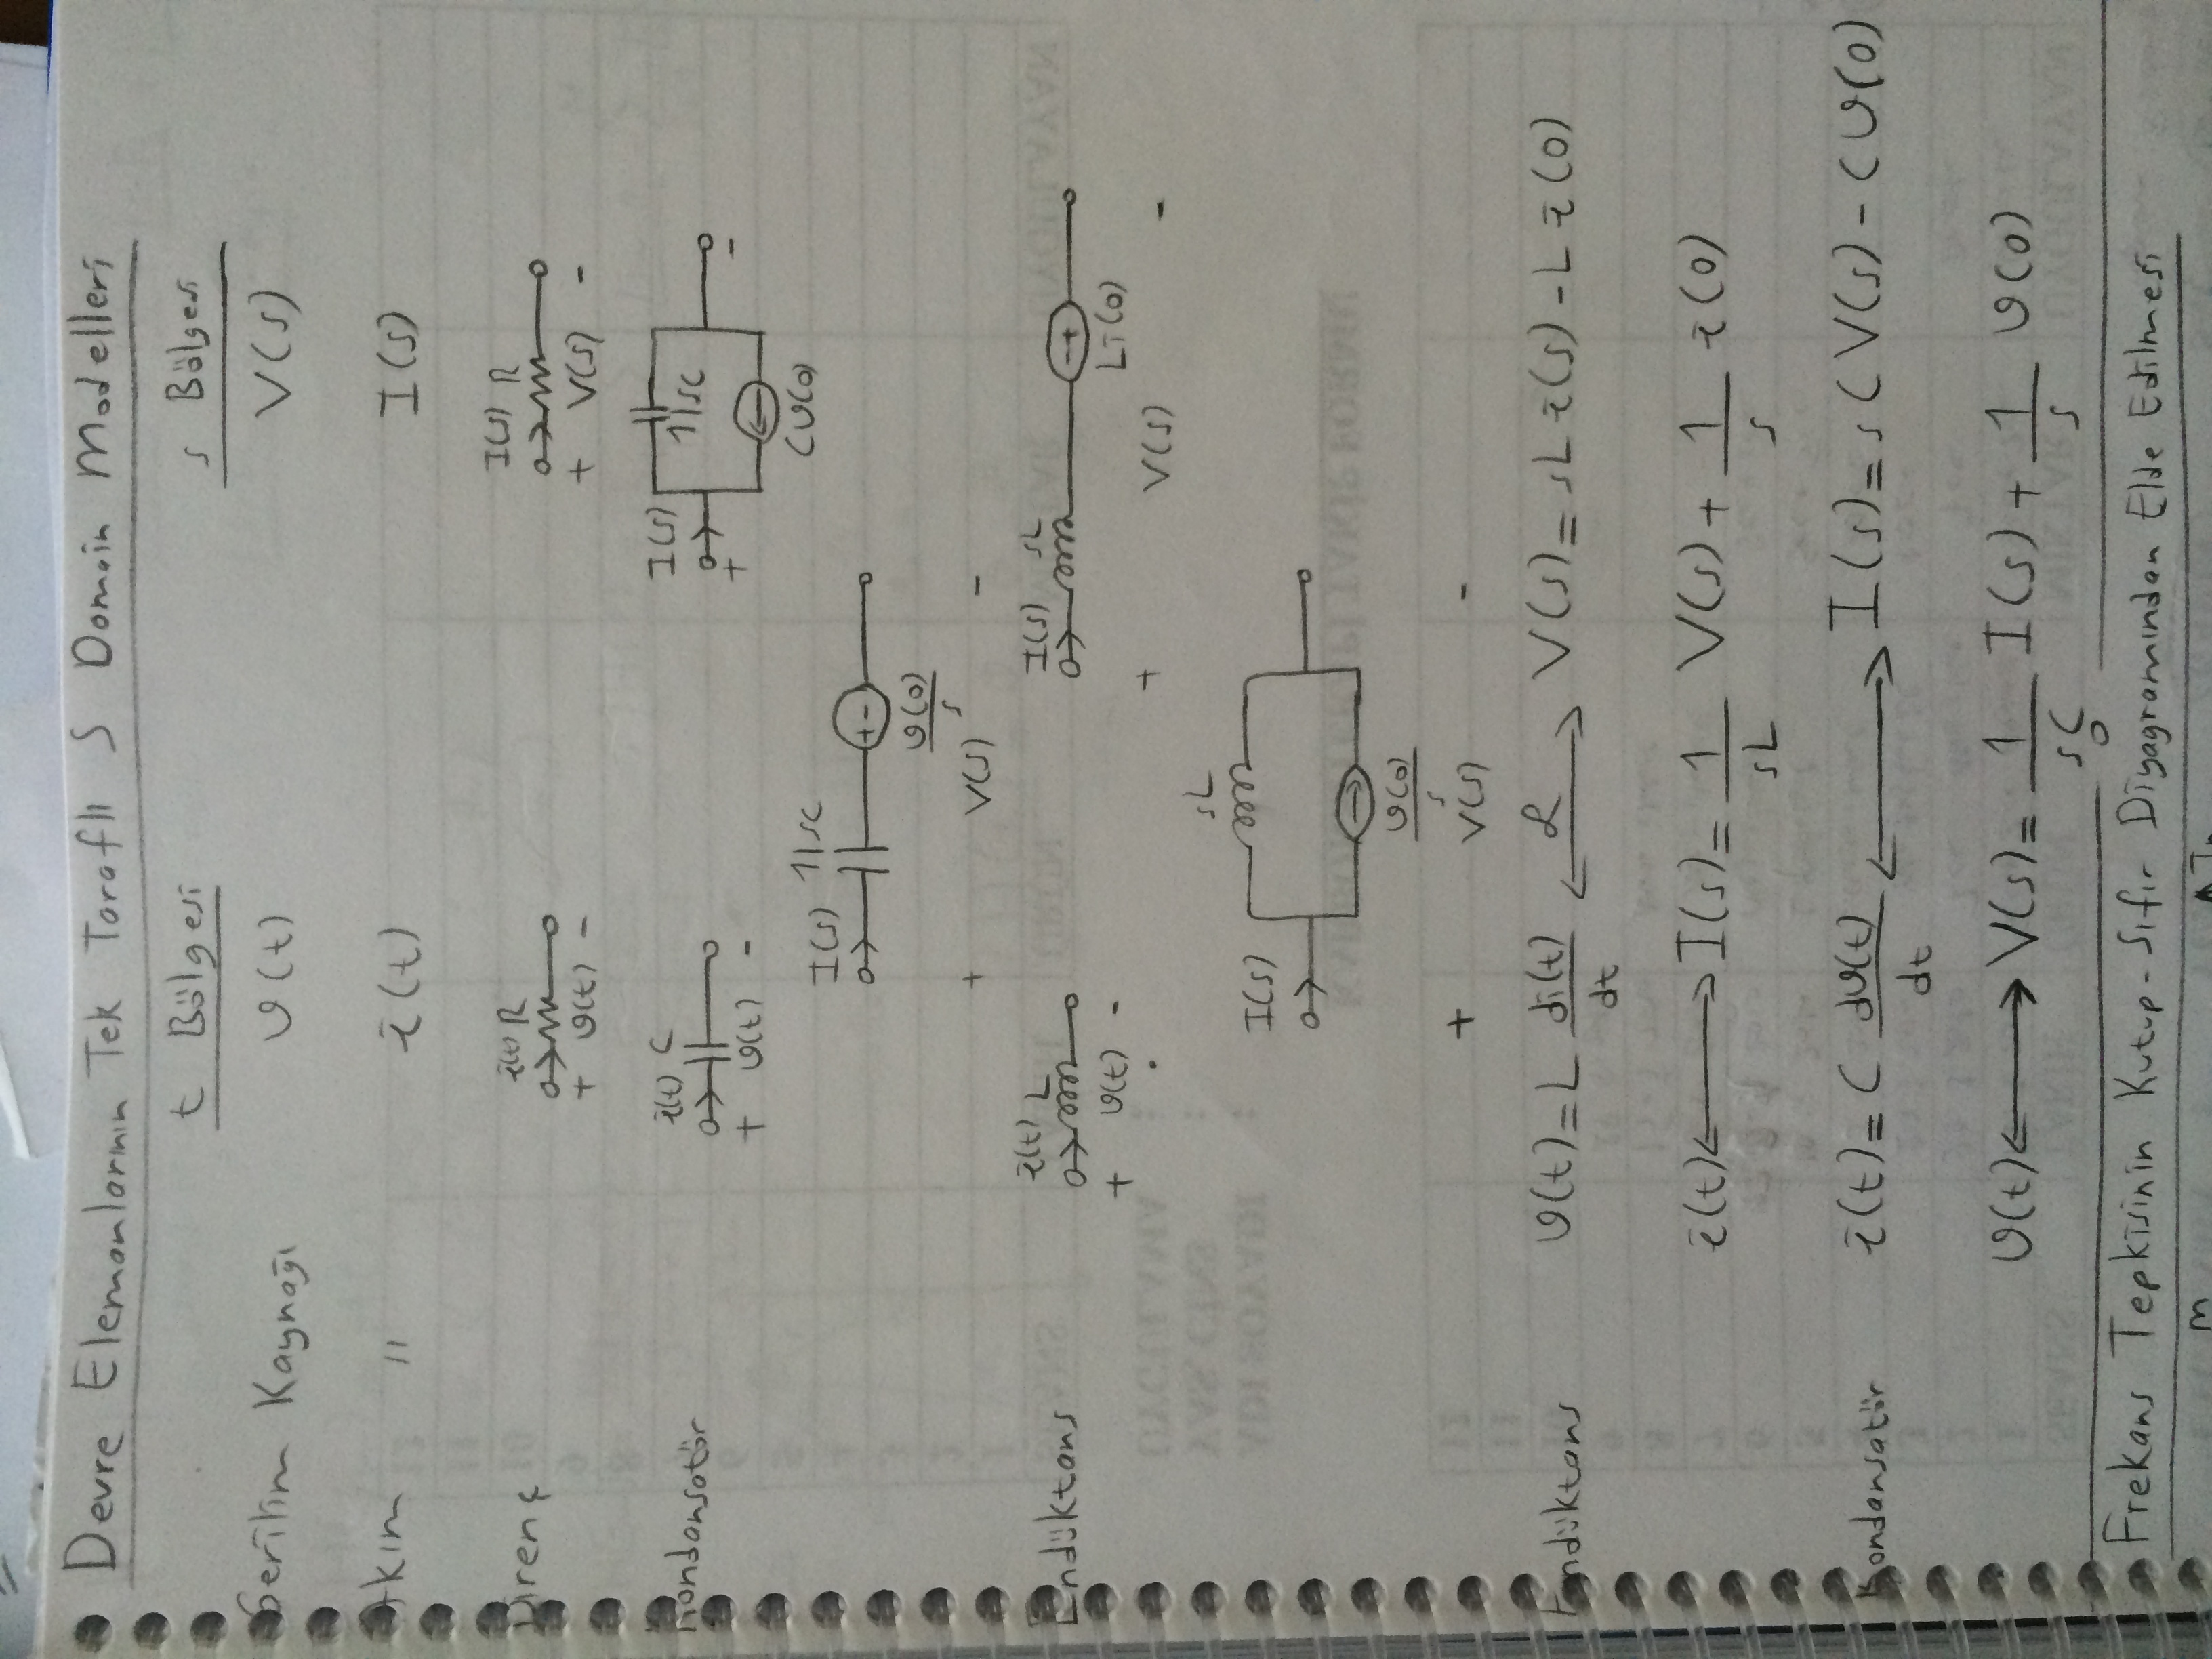 Devre Elemanlarının Tek Taraflı S Domain Modelleri
t Bölgesi s Bölgesi
Gerilim Kaynağı v(t) V(s)
Akım " i(t) I(s)
i(t) R I(s) R
Direnç
+ v(t) - + V(s) -
i(t) C I(s) 1/sC
Kondansatör
+ v(t) - + -
Cv(0)
I(s) 1/sC
+ -
v(0)/s
+ V(s) -
i(t) L I(s) sL
Endüktans - +
+ v(t) - Li(0)
+ V(s) -
sL
I(s)
v(0)/s
+ V(s) -
Endüktans v(t) = L di(t)/dt ⟷ℒ V(s) = sL i(s) - L i(0)
i(t) ⟷ I(s) = 1/sL V(s) + 1/s i(0)
Kondansatör i(t) = C dv(t)/dt ⟷ I(s) = sCV(s) - Cv(0)
v(t) ⟷ V(s) = 1/sC I(s) + 1/s v(0)
Frekans Tepkisinin Kutup-Sıfır Diyagramından Elde Edilmesi